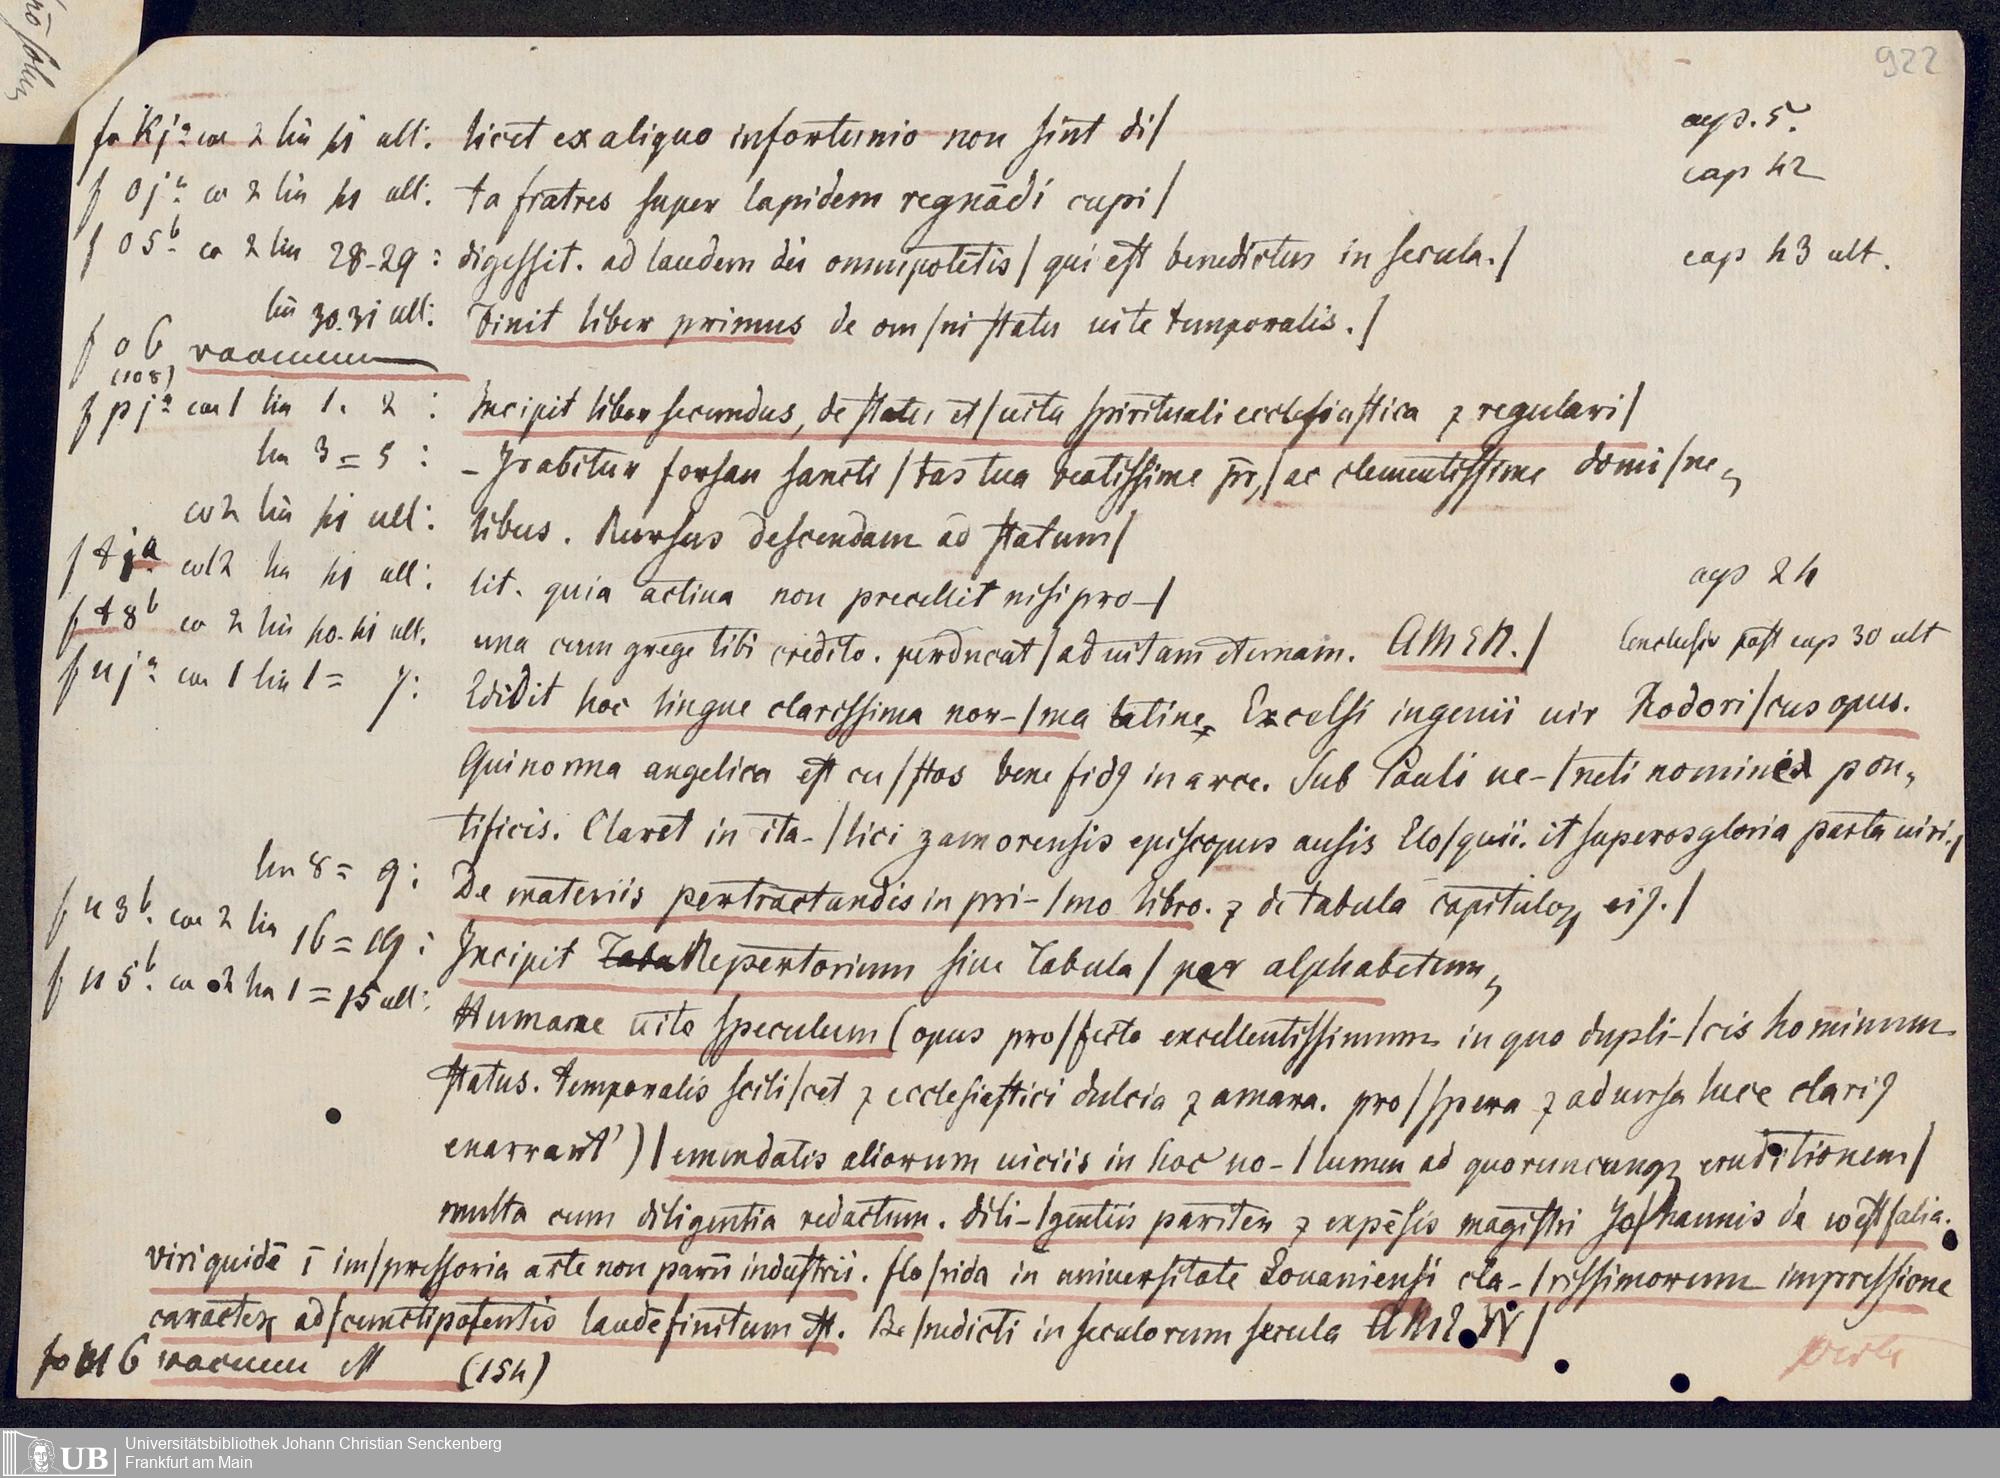 922
fo Kjª co 2 lin 41 ult: licet ex aliquo infortunio non sint di/ cap. 5.
f ojª co 2 lin 41 ult: ta fratres super lapidem regnādi cupi/ cap 42
f o5ᵇ co 2 lin 28-29: digessit. ad laudem dei omnipotētis/ qui est benedictus in secula./ cap 43 ult.
lin 30.31 ult: Finit liber primus de om/ni statu uite temporalis./
f o6 vacuum
(108)
f pjª co 1 lin 1. 2: Incipit liber secundus, de statu et/uita spirituali ecclesiastica ⁊ regulari/
lin 3 = 5: - Irabitur forsan sancti/tas tua beatissime pr̄,/ac clementissime domi/ne,
co 2 lin 41 ult: libus. Rursus descendam ad statum/
f tjª col 2 lin 41 ult: lit. quia actiua non precellit nisi pro-/ cap 24
f t8ᵇ co 2 lin 40.41 ult. una cum grege tibi credito. perducat/ad uitam eternam. AMEN./ Conclusio post cap 30 ult
f ujª co 1 lin 1 = 7: Edidit hoc lingue clarissima nor-/ma latine, Excelsi ingenii uir Rodori/cus opus.
Qui norma angelica est cu/stos bene fidꝰ in arce. Sub Pauli ue-/neti nomine pon,
tificis. Claret in ita-/lici zamorensis episcopus ausis Elo/quii. it superos gloria parta uiri./
lin 8 = 9: De materiis pertractandis in pri-/mo libro. ⁊ de tabula capituloꝝ eiꝰ./
f u3ᵇ. co 2 lin 16 = 19: Incipit Repertorium siue tabula/ per alphabetum,
f u5ᵇ. co 2 lin 1 = 15 ult: Humane uite speculum (opus pro/fecto excellentissimum in quo dupli-/cis hominum
status. temporalis scili/cet ⁊ ecclesiastici dulcia ⁊ amara. pro/spera ⁊ aduersa luce clariꝰ
enarrant')/emendatis aliorum uiciis in hoc uo-/lumen ad quoruncunqꝫ eruditionem/
multa cum diligentia redactum. dili-/gentiis pariter ⁊ expēsis magistri Jo/hannis de westfalia.
viri quidē ī im/pressoria arte non parū industrii. flo/rida in uniuersitate Louaniensi cla-/rissimorum impressione
caracteꝝ ad/cunctipotentis laudē finitum est. Be/nedicti in seculorum secula AMEN/
fo u6 vacuum (154)
Universitätsbibliothek Johann Christian Senckenberg
Frankfurt am Main
UB